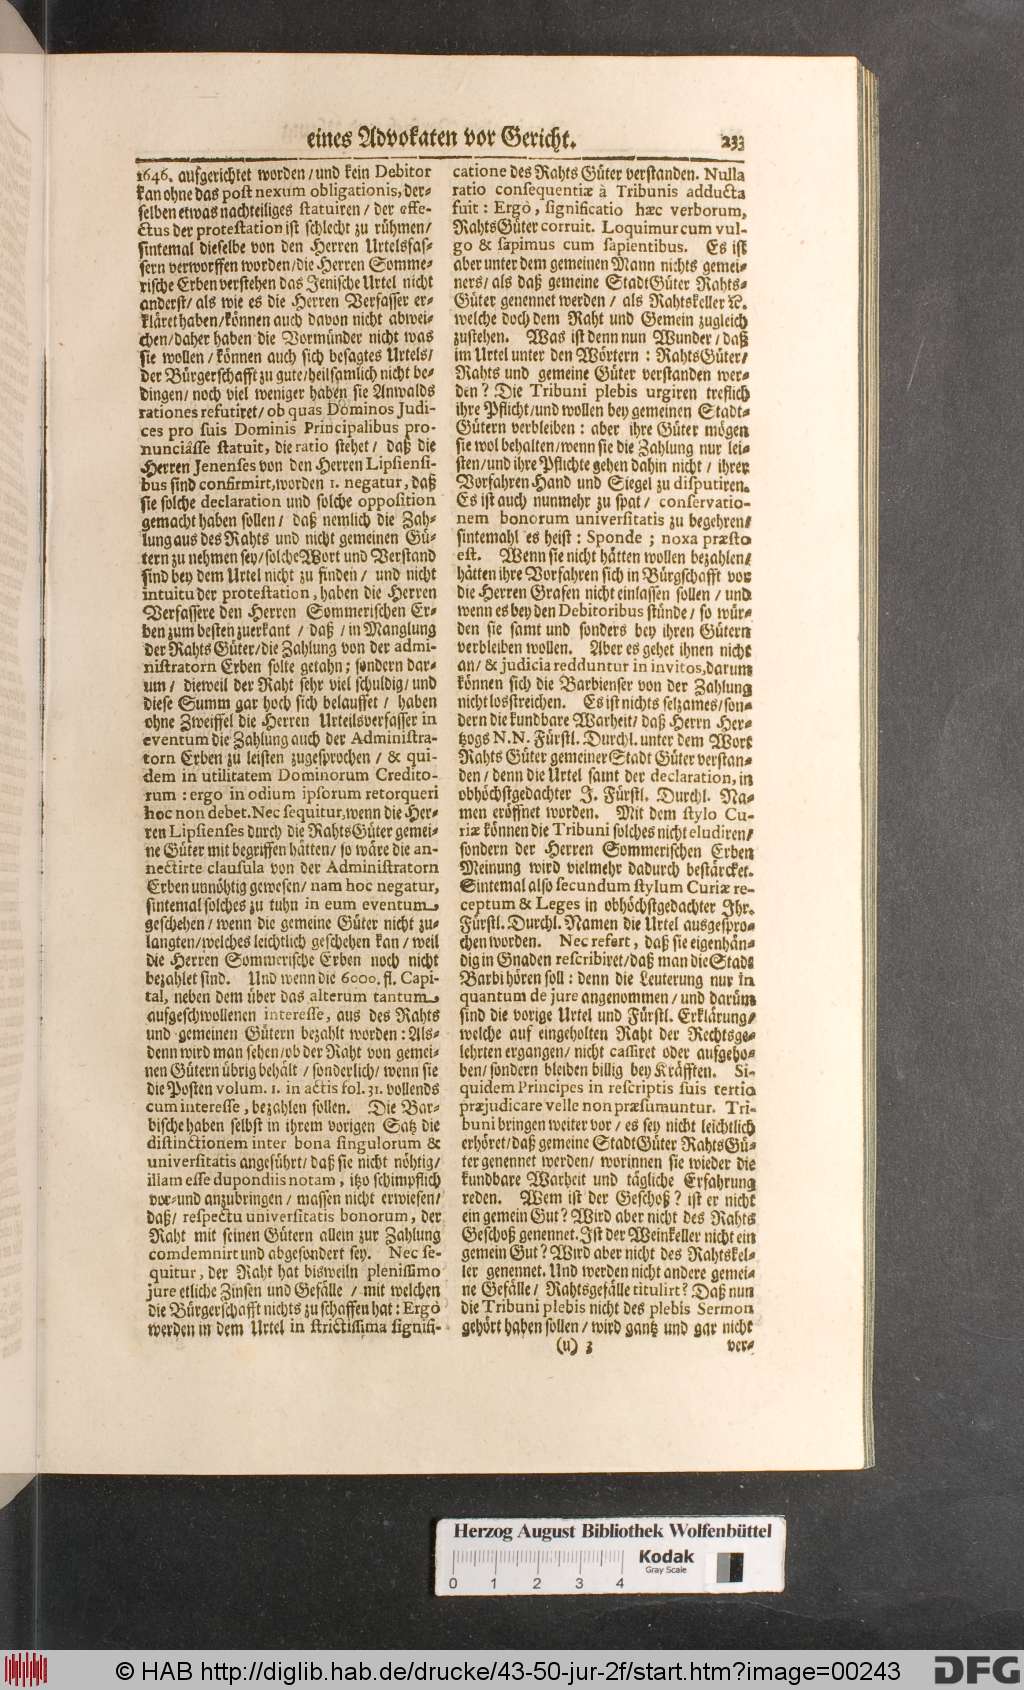 eines Advokaten vor Gericht. 233
1646. aufgerichtet worden/und kein Debitor
kan ohne das post nexum obligationis, der-
selben etwas nachteiliges statuiren / der effe-
ctus der protestation ist schlecht zu rühmen/
sintemal dieselbe von den Herren Urtelsfas-
sern verworffen worden/die Herren Somme-
rische Erben verstehen das Jenische Urtel nicht
anderst/ als wie es die Herren Verfasser er-
kläret haben/können auch davon nicht abwei-
chen/daher haben die Vormünder nicht was
sie wollen / können auch sich besagtes Urtels/
der Bürgerschafft zu gute/heilsamlich nicht be-
dingen/ noch viel weniger haben sie Anwalds
rationes refutiret/ ob quas Dominos Judi-
ces pro suis Dominis Principalibus pro-
nunciâsse statuit, die ratio stehet / daß die
Herren Jenenses von den Herren Lipsiensi-
bus sind confirmirt, worden 1. negatur, daß
sie solche declaration und solche opposition
gemacht haben sollen/ daß nemlich die Zah-
lung aus des Rahts und nicht gemeinen Gü-
tern zu nehmen sey/solche Wort und Verstand
sind bey dem Urtel nicht zu finden/ und nicht
intuitu der protestation, haben die Herren
Verfassere den Herren Sommerischen Er-
ben zum besten zuerkant / daß / in Manglung
der Rahts Güter/die Zahlung von der admi-
nistratorn Erben solte getahn; sondern dar-
um / dieweil der Raht sehr viel schuldig/ und
diese Summ gar hoch sich belauffet / haben
ohne Zweiffel die Herren Urteilsverfasser in
eventum die Zahlung auch der Administra-
torn Erben zu leisten zugesprochen / & qui-
dem in utilitatem Dominorum Credito-
rum : ergo in odium ipsorum retorqueri
hoc non debet. Nec sequitur, wenn die Her-
ren Lipsienses durch die RahtsGüter gemei-
ne Güter mit begriffen hätten/ so wäre die an-
nectirte clausula von der Administratorn
Erben unnöhtig gewesen/ nam hoc negatur,
sintemal solches zu tuhn in eum eventum,
geschehen/ wenn die gemeine Güter nicht zu-
langten/welches leichtlich geschehen kan / weil
die Herren Sommerische Erben noch nicht
bezahlet sind. Und wenn die 6000. fl. Capi-
tal, neben dem über das alterum tantum,
aufgeschwollenen interesse, aus des Rahts
und gemeinen Gütern bezahlt worden: Als-
denn wird man sehen/ob der Raht von gemei-
nen Gütern übrig behält / sonderlich/ wenn sie
die Posten volum. 1. in actis fol. 31. vollends
cum interesse, bezahlen sollen. Die Bar-
bische haben selbst in ihrem vorigen Satz die
distinctionem inter bona singulorum &
universitatis angeführt/ daß sie nicht nöhtig/
illam esse dupondiis notam, itzo schimpflich
vor-und anzubringen/ massen nicht erwiesen/
daß/ respectu universitatis bonorum, der
Raht mit seinen Gütern allein zur Zahlung
comdemnirt und abgesondert sey. Nec se-
quitur, der Raht hat bisweiln plenissimo
jure etliche Zinsen und Gefälle / mit welchen
die Bürgerschafft nichts zu schaffen hat: Ergò
werden in dem Urtel in strictissima signifi-
catione des Rahts Güter verstanden. Nulla
ratio consequentiæ à Tribunis adducta
fuit : Ergò, significatio hæc verborum,
RahtsGüter corruit. Loquimur cum vul-
go & sapimus cum sapientibus. Es ist
aber unter dem gemeinen Mann nichts gemei-
ners/ als daß gemeine StadtGüter Rahts-
Güter genennet werden/ als Rahtskeller ꝛc.
welche doch dem Raht und Gemein zugleich
zustehen. Was ist denn nun Wunder/ daß
im Urtel unter den Wörtern : RahtsGüter/
Rahts und gemeine Güter verstanden wer-
den? Die Tribuni plebis urgiren treflich
ihre Pflicht/und wollen bey gemeinen Stadt-
Gütern verbleiben : aber ihre Güter mögen
sie wol behalten/wenn sie die Zahlung nur lei-
sten/und ihre Pflichte gehen dahin nicht / ihrer
Vorfahren Hand und Siegel zu disputiren.
Es ist auch nunmehr zu spat / conservatio-
nem bonorum universitatis zu begehren/
sintemahl es heist : Sponde ; noxa præsto
est. Wenn sie nicht hätten wollen bezahlen/
hätten ihre Vorfahren sich in Bürgschafft vor
die Herren Grafen nicht einlassen sollen / und
wenn es bey den Debitoribus stünde/ so wür-
den sie samt und sonders bey ihren Gütern
verbleiben wollen. Aber es gehet ihnen nicht
an/ & judicia redduntur in invitos, darum
können sich die Barbienser von der Zahlung
nicht losstreichen. Es ist nichts selzames/son-
dern die kundbare Warheit/ daß Herrn Her-
tzogs N.N. Fürstl. Durchl. unter dem Wort
Rahts Güter gemeiner Stadt Güter verstan-
den / denn die Urtel samt der declaration, in
obhöchstgedachter J. Fürstl. Durchl. Na-
men eröffnet worden. Mit dem stylo Cu-
riæ können die Tribuni solches nicht eludiren/
sondern der Herren Sommerischen Erben
Meinung wird vielmehr dadurch bestärcket.
Sintemal also secundum stylum Curiæ re-
ceptum & Leges in obhöchstgedachter Ihr.
Fürstl. Durchl. Namen die Urtel ausgespro-
chen worden. Nec refert, daß sie eigenhän-
dig in Gnaden rescribiret/daß man die Stadt
Barbi hören soll : denn die Leuterung nur in
quantum de jure angenommen / und darüm
sind die vorige Urtel und Fürstl. Erklärung/
welche auf eingeholten Raht der Rechtsge-
lehrten ergangen/ nicht cassiret oder aufgeho-
ben/ sondern bleiben billig bey Kräfften. Si-
quidem Principes in rescriptis suis tertio
præjudicare velle non præsumuntur. Tri-
buni bringen weiter vor / es sey nicht leichtlich
erhöret/daß gemeine StadtGüter RahtsGü-
ter genennet werden/ worinnen sie wieder die
kundbare Warheit und tägliche Erfahrung
reden. Wem ist der Geschoß? ist er nicht
ein gemein Gut? Wird aber nicht des Rahts
Geschoß genennet. Ist der Weinkeller nicht ein
gemein Gut? Wird aber nicht des Rahtskel-
ler genennet. Und werden nicht andere gemei-
ne Gefälle/ Rahtsgefälle titulirt? Daß nun
die Tribuni plebis nicht des plebis Sermon
gehört haben sollen / wird gantz und gar nicht
(u) 3 ver-
Herzog August Bibliothek Wolfenbüttel
0 1 2 3 4
Kodak
Gray Scale
© HAB http://diglib.hab.de/drucke/43-50-jur-2f/start.htm?image=00243
DFG